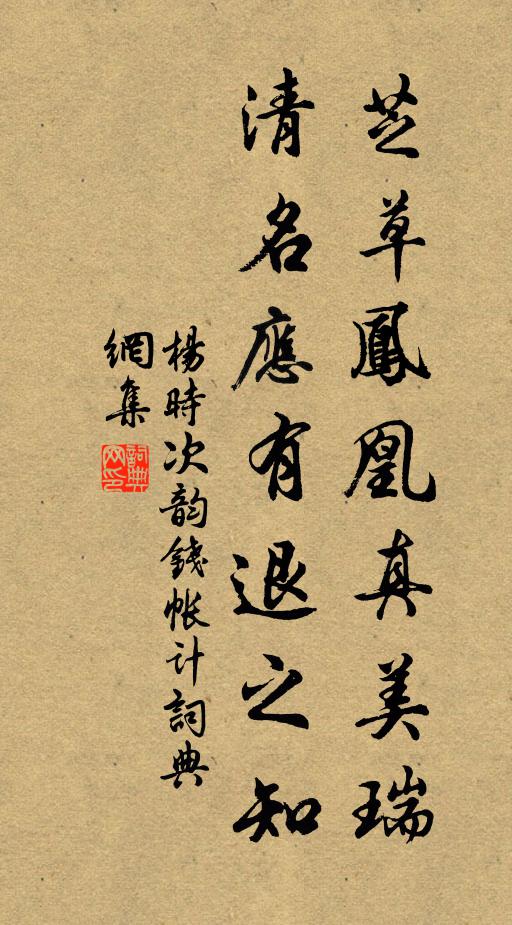 芝草鳳凰真美瑞
清名應有退之知
楊時次韵錢帐计詞典
網集
詞典
网印